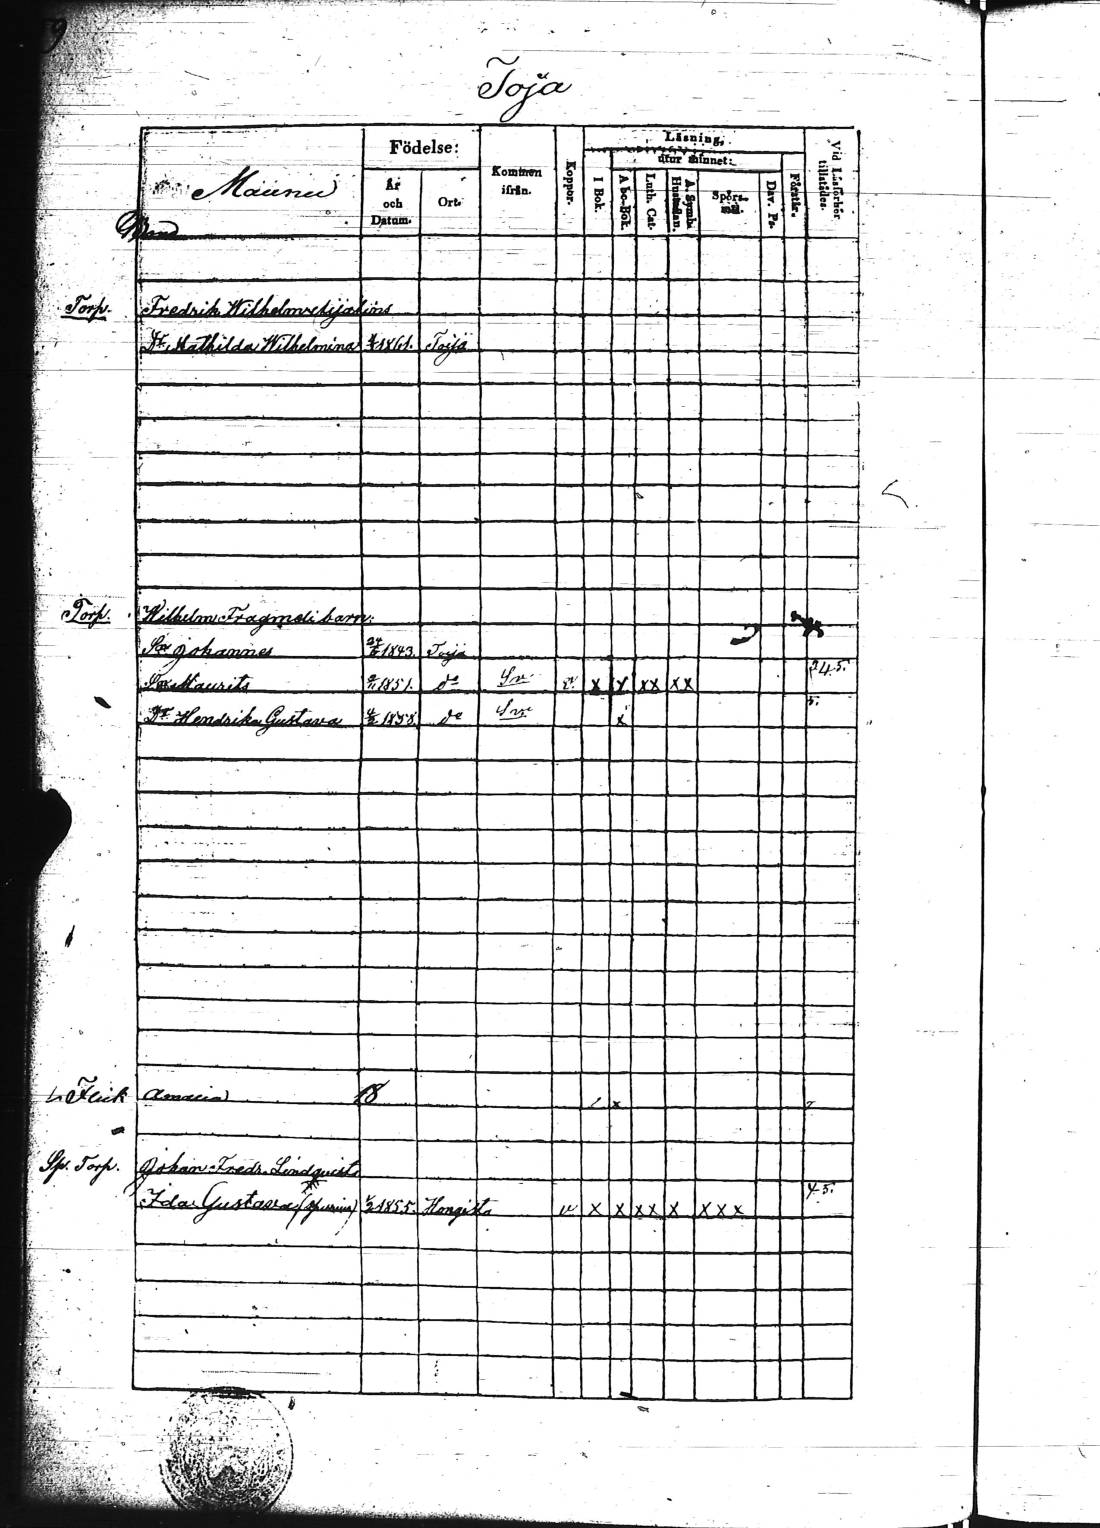 9
Toja
Maunu
Födelse:
År och Datum.
Ort.
Kommen ifrån.
Koppor.
Läsning,
utur minnet:
I Bok.
A bc-Bok.
Luth. Cat.
A. Symb. Hustaflan.
Spörsmål.
Dav. Ps.
Förstår.
Vid Läsförhör tillstädes.
Torp. Fredrik Wilhelm
Dr. Mathilda Wilhelmina 1861. Toija
Torp. Wilhelm Fragmdi barn.
Son Johannes 1843. Toija
Son Maurits 1851. do Sv v. x x xx xx 345.
Dr. Hendrika Gustava 1858 do Sv x 5.
Flick Amalia 18 x
Sp. Torp. Johan Fredr. Lindqvist
Ida Gustava (spuria) 1855. Hongista v x x xx x xxx 45.